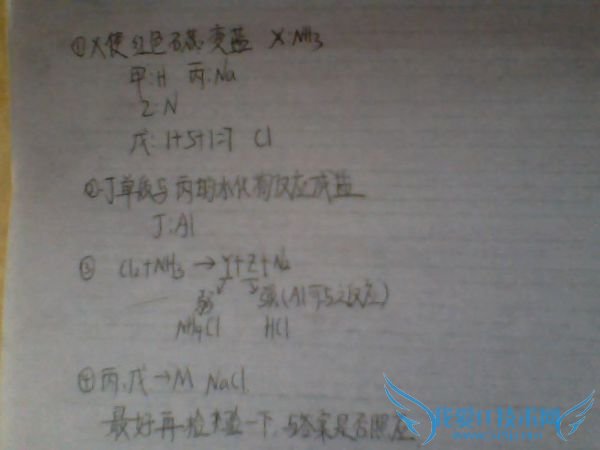 ①X使红色石蕊变蓝 X:NH3
甲:H 丙:Na
乙:N
戊:1+5+1=7 Cl
②丁单质与丙的水化物反应成盐
丁:Al
③ Cl2+NH3 → Y+Z+N2
弱 强(Al可与之反应)
NH4Cl HCl
④丙,戊→M NaCl
最好再检查验一下,与答案是否照应